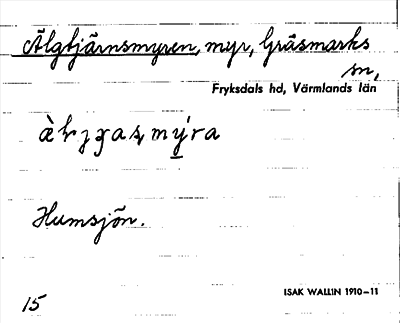 Älgtjärnsmyren, myr, Gräsmarks
sn,
Fryksdals hd, Värmlands län
Humsjön.
15
ISAK WALLIN 1910–11